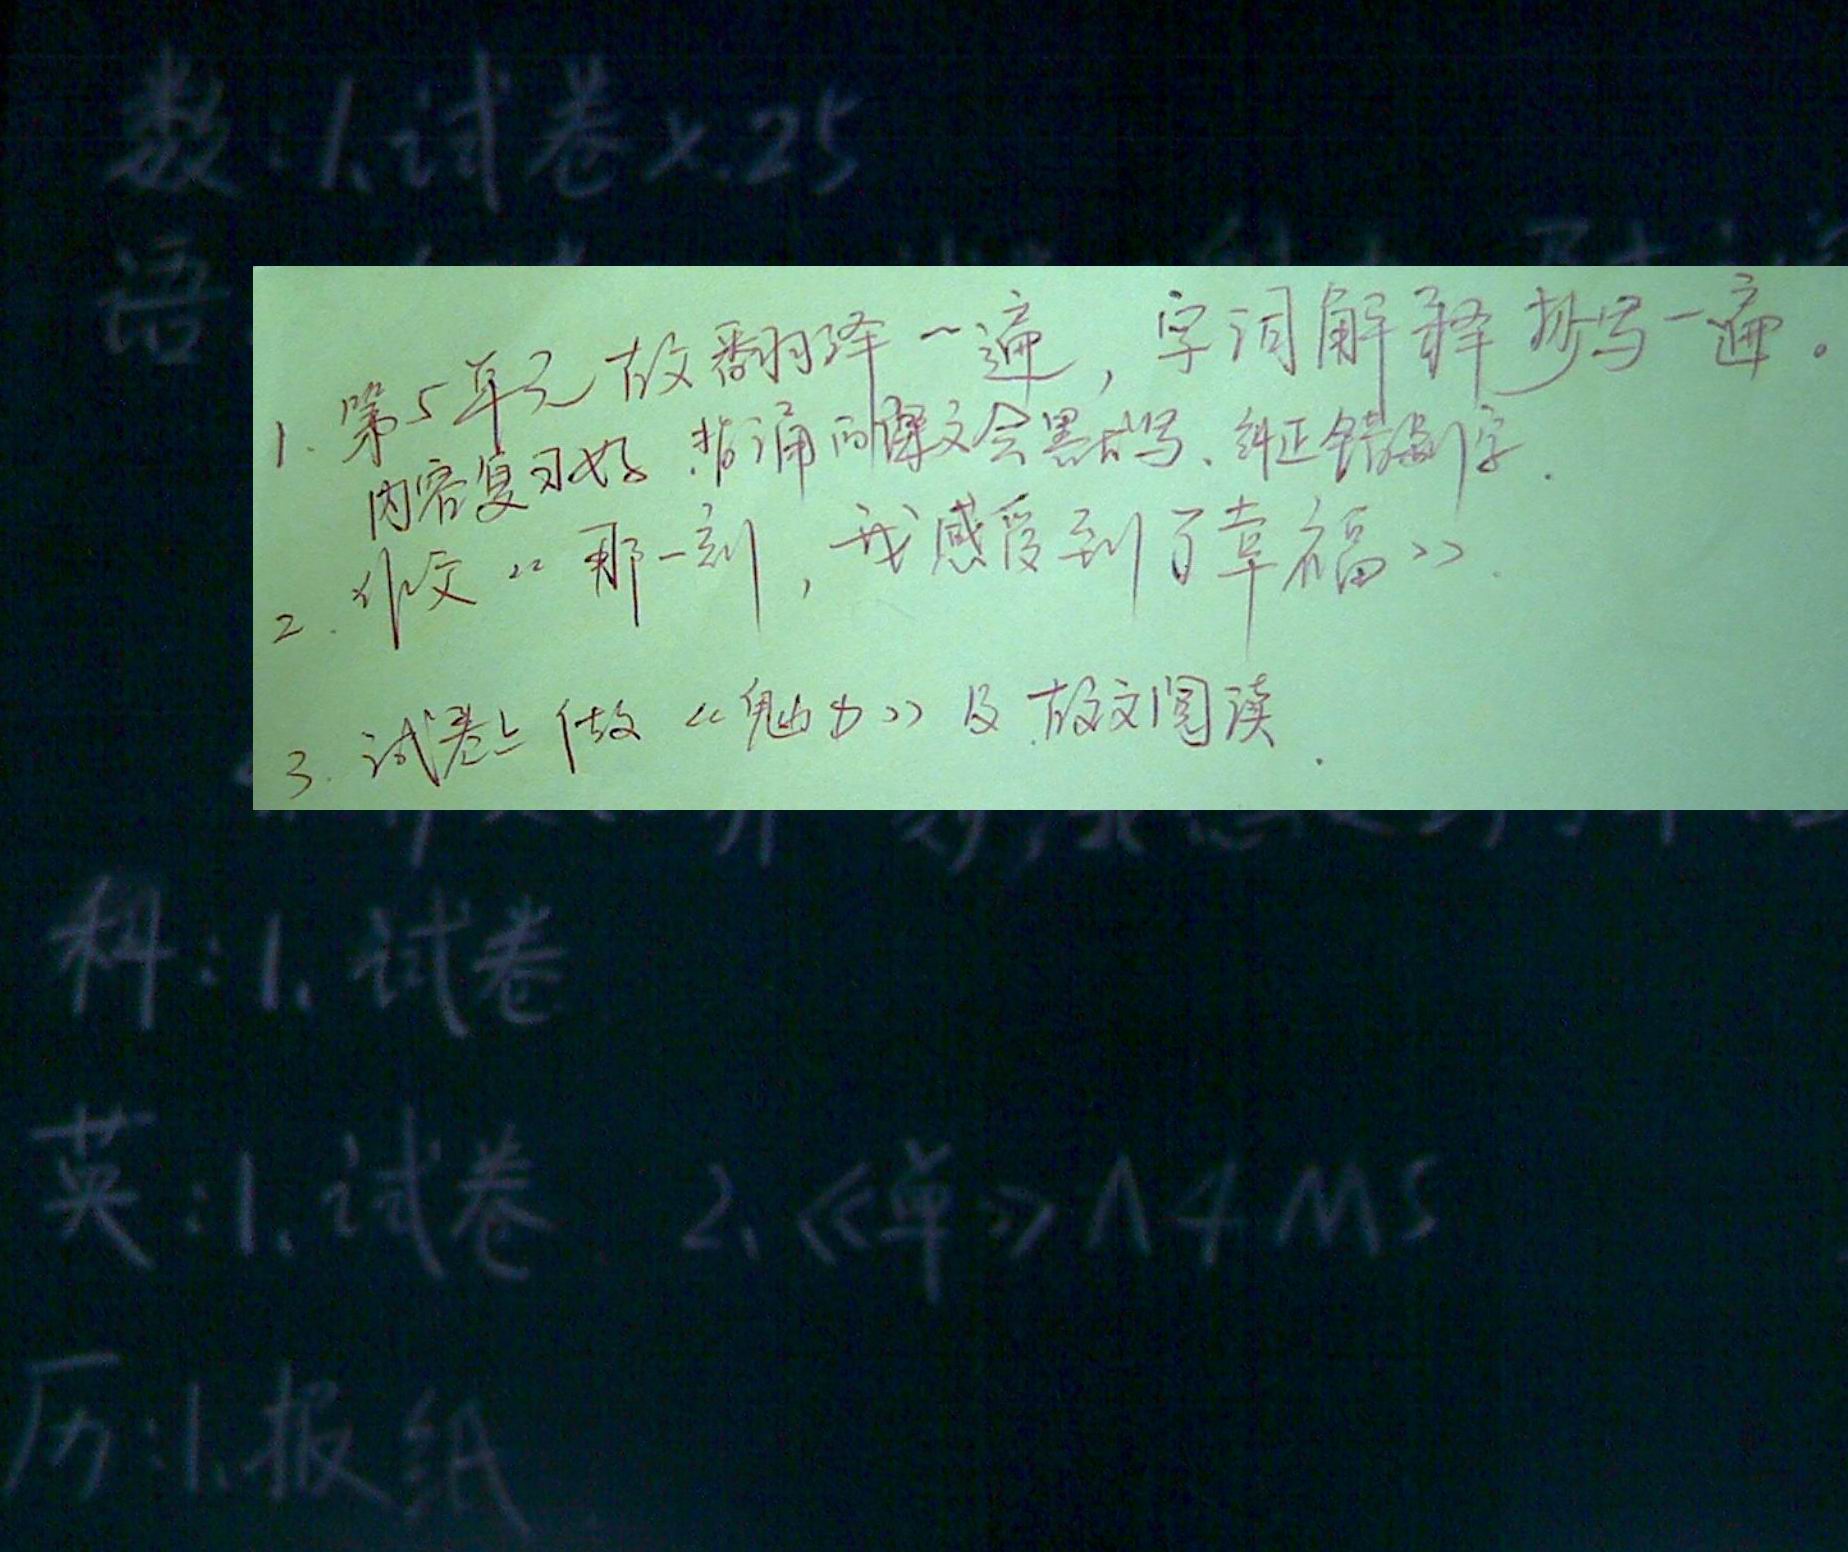 数:1.试卷×.25
语
1.第5单元故翻译一遍,字词解释抄写一遍。
内容复习好.背诵的课文会默写、纠正错别字.
2.作文《那一刻,我感受到了幸福》.
3.试卷上做《魅力》及故文阅读.
科:1.试卷
英:1.试卷 2.《单》A4 M5
历:1.报纸